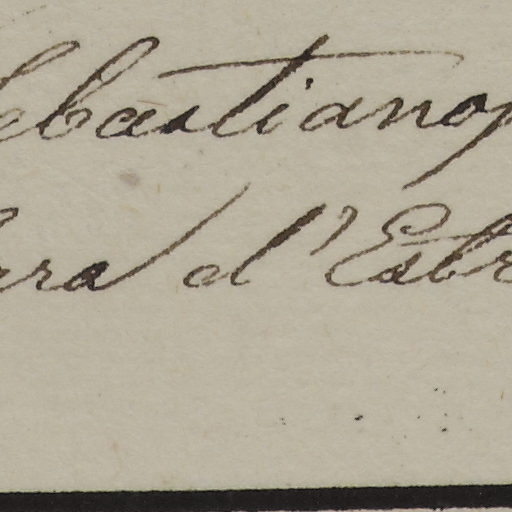 ebastianop
era d'Estr